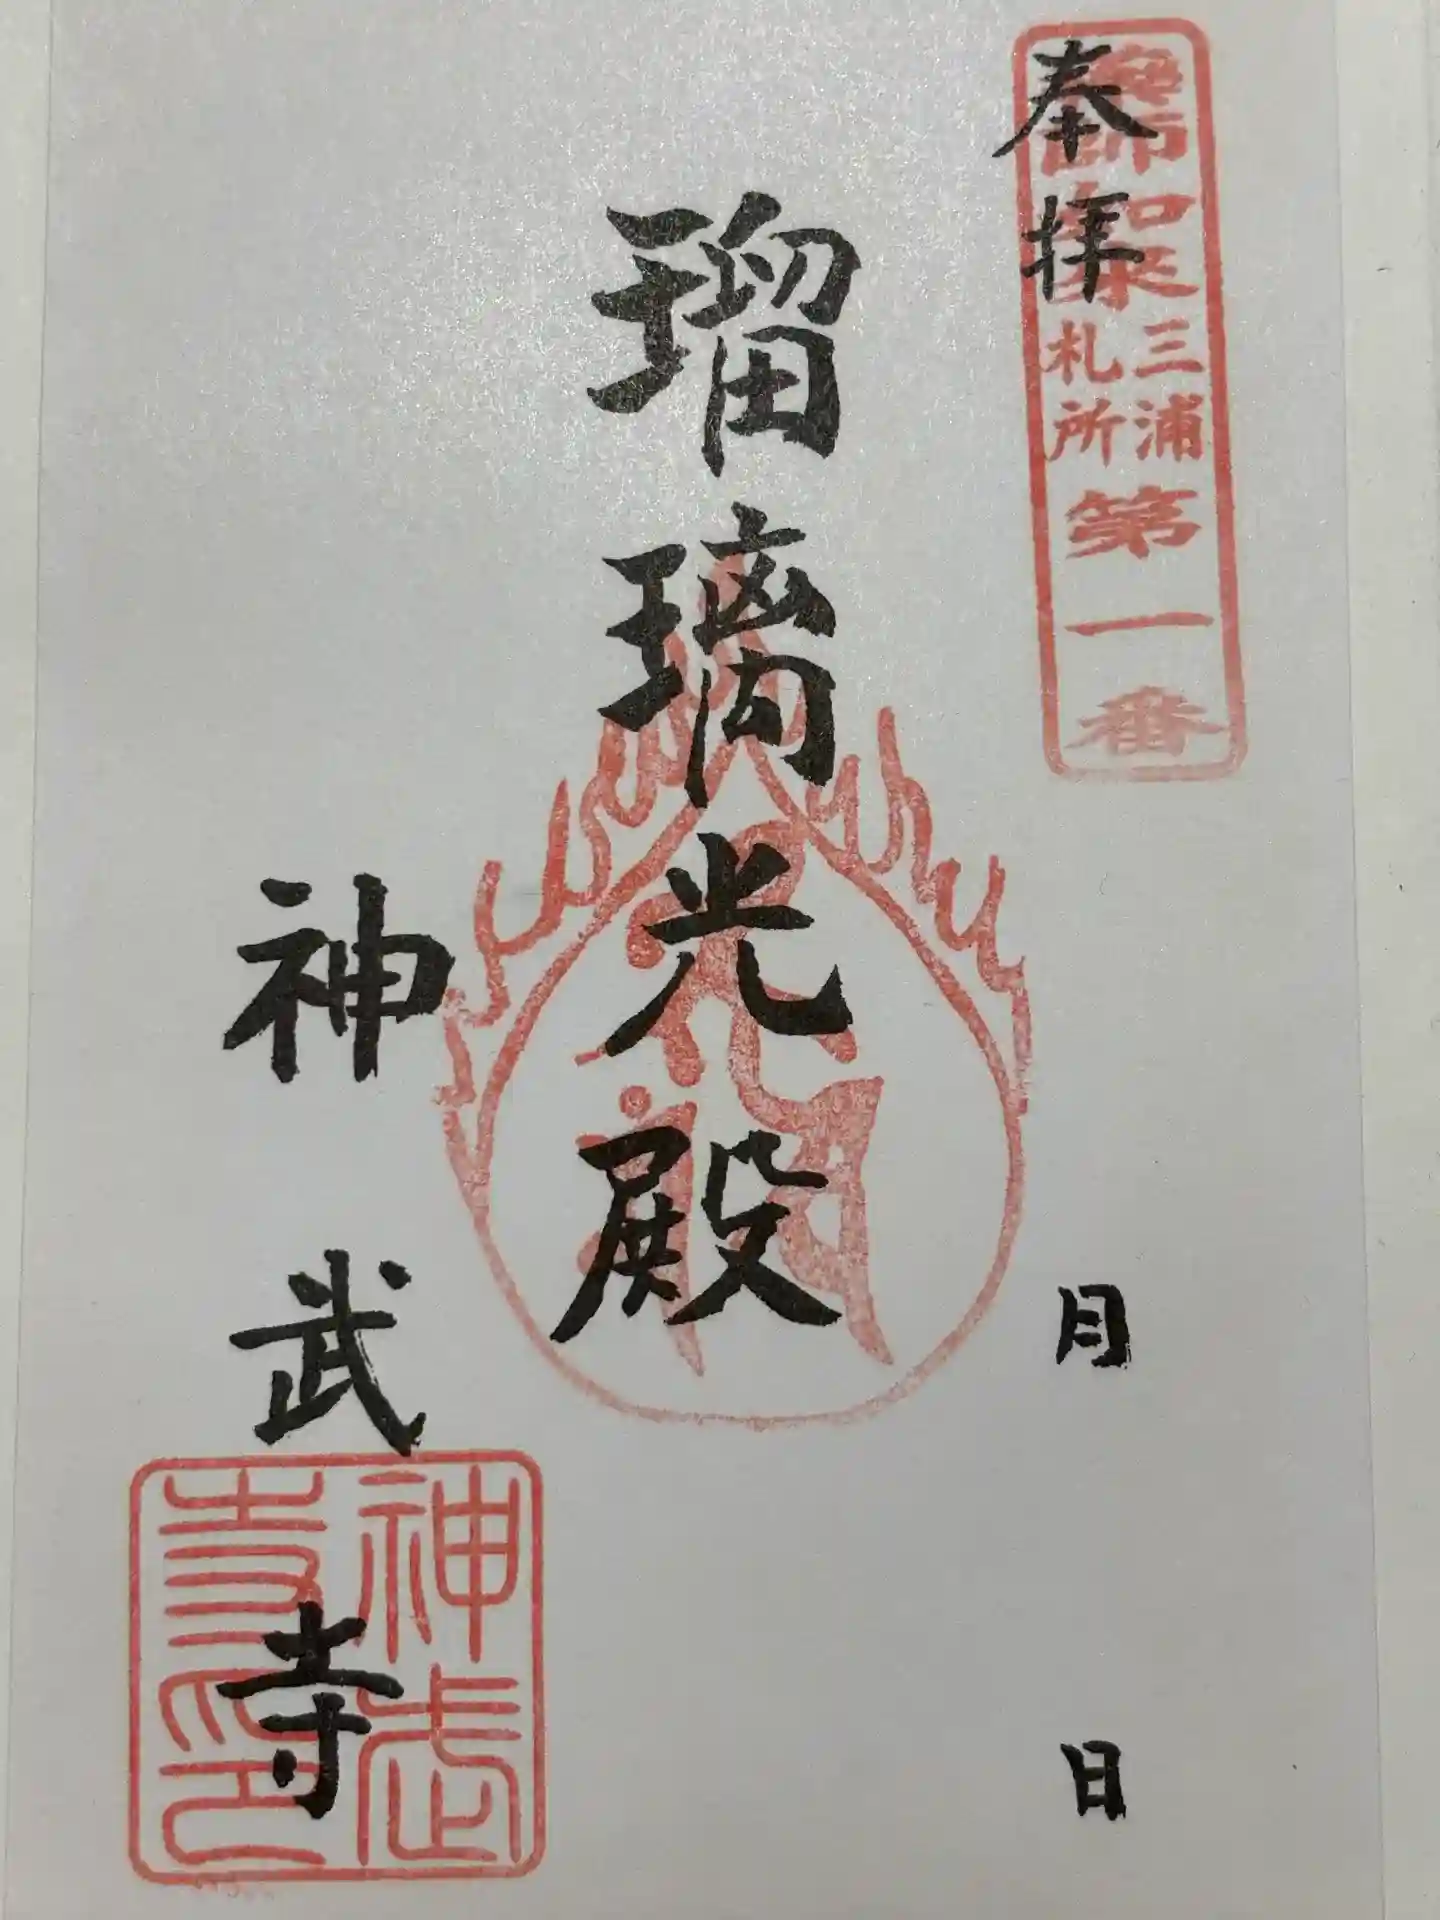 奉拝
薬師如来
三浦
札所
第一番
月
日
瑠璃光殿
神武寺
神武
寺印